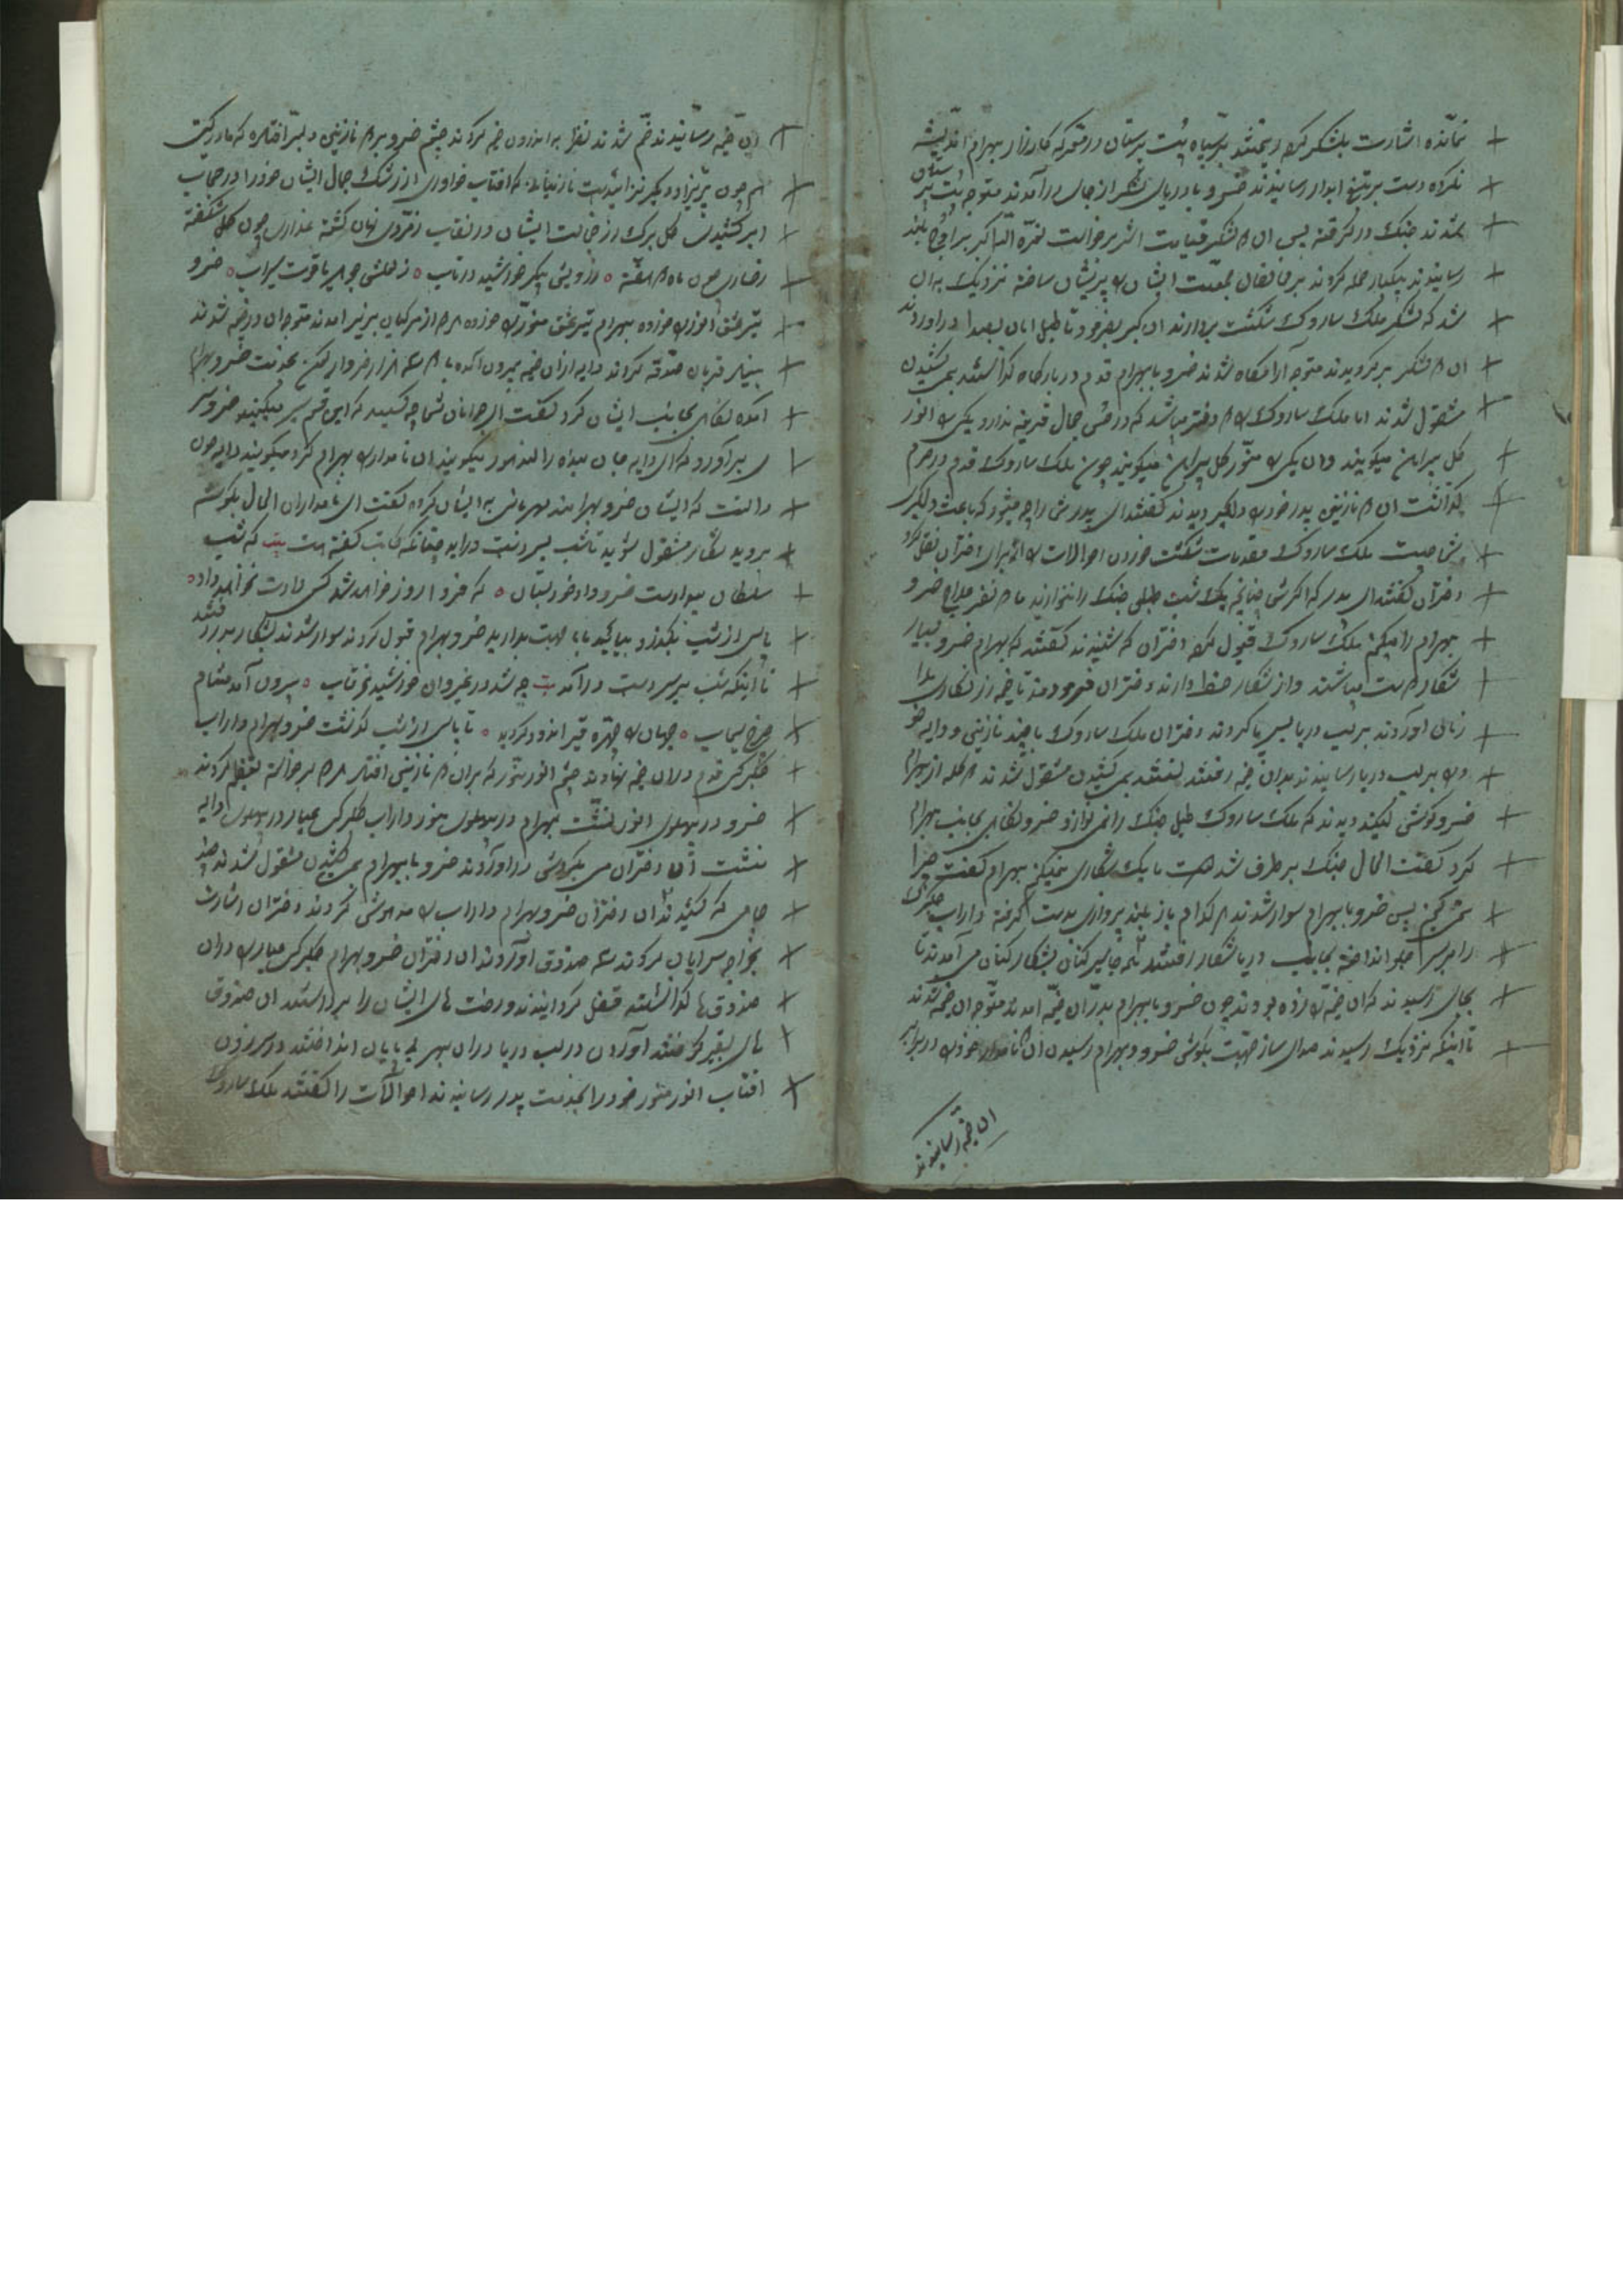 نمانده اشارت بلشکر کرد ریختند بر سپاه بت پرستان در معرکه کارزار بهرام اندیشه
نکرده دست بر تیغ ابدار رسانیدند خسرو با دریای لشکر از جای درآمدند متوجه بت پرستان
شدند جنگ در گرفته پس ان دو لشکر قیامت اثر برخواست نعره الله اکبر بر اوج بلند
رسانیدند بیکبار حمله کردند بر مخالفان جمعیت ایشان را پریشان ساخته نزدیک به ان
شد که لشکر ملک ساروک شکست بردارند ان گبر بفرمود تا طبل امان بصدا دراوردند
ان دو لشکر برگردیدند متوجه آرامگاه شدند خسرو با بهرام قدم در بارگاه گذاشتند بمی کشیدن
مشقول شدند اما ملک ساروک را دو دختر میباشد که در حسن جمال قرینه ندارد یکی را انور
گل پیراهن میگویند وان یکی را منور گل پیراهن میگویند چون ملک ساروک قدم در حرم
گذاشت ان دو نازنین پدر خود را دلگیر دیدند گفتند ای پدر ش را چه میشود که باعث دلگیری
شما چیست ملک ساروک مقدمات شکست خوردن احوالات را از برای دختران نقل کرد
دختران گفتند ای پدر که اگر شما چنانچه یک شب طبل جنگ را ننوازند ما دو نفر علاج خسرو
بهرام را میکنم ملک ساروک قبول کرد دختران که شنیدند گفتند که بهرام خسرو بسیار
شکار دوست میباشند واز شکار حظ دارند دختران فرمودند تا خیمه زرنگاری را
زنان اوردند بر لب دریا بس پا کردند دختران ملک ساروک با چند نازنین و دایه خو
د را بر لب دریا رسانیدند بدان خیمه رفتند نشستند بمی کشیدن مشقول شدند
خسرو گوش کنید دیدند که ملک ساروک طبل جنگ را نمی نوازد خسرو نگاهی بجانب بهرام
کرد گفت الحال جنگ برطرف شده است تا یک شکاری نمیکنم بهرام گفت چرا
نمی کنم پس خسرو با بهرام سوار شدند هر کدام باز بلند پروازی بدست گرفته داراب
را بر سر جلو انداخته بجانب دریا شکار رفتند شکار کنان می آمدند تا
بجای رسیدند که ان خیمه را زده بودند چون خسرو با بهرام بدران خیمه امدند متوجه ان خیمه شدند
تا اینکه نزدیک رسیدند صدای ساز صحبت بگوش خسرو و بهرام رسیدن ان نامداران خود را در برابر
ان خیمه رسانیدند
ان خیمه رسانیدند خم شدند نظر به اندرون خیمه کردند چشم خسرو بر دو نازنین دلبر افتاد که مادر گیتی
هم چون پریزاد و پیکر نزائیده است نازنینانی که افتاب خواوری از رشک جمال ایشان خود را در حجاب
ابر کشیدی گل برگ از خجالت ایشان در نقاب زمردی نهان گشته عذاری چون گل شکفته
رخساری چون ماه دو هفته ه ز رویش پیکر خورشید در تاب ه ز لعلش جوهر یاقوت سیراب ه خسرو
تیر عشق انور را خورده بهرام تیر عشق منور را خورده هر دو از مرکبان بزیر امدند متوجه ان در خیمه شدند
بسیار قربان صدقه کردند دایه از ان خیمه بیرون آمده بخدمت خسرو بهرام
آمده نگاهی بجانب ایشان کرد گفت ای جوانان شما چه کسید که این قسم سر میکنید خسرو سر
بر آورد که ای دایه جان بنده را انور میگویند ان نامدار را بهرام گرد میگویند دایه چون
دانست که ایشان خسرو بهرامند مهربانی به ایشان کرد گفت ای نامداران الحال بگوشه
بروید بشکار مشقول شوید تا شب بسر دست دراید چنانکه کاتب گفته است بیت که شب
سلطان میدادست خسرو داد خود بستان ه که فردا روز خواهد شد کسی دادت نخواهد داد ه
پاسی از شب بگذرد بیایید با ما صحبت بدارید خسرو بهرام قبول کردند سوار شدند بشکار بدر رفتند
تا اینکه شب بر سر دست درآمد بیت چه شد در غیروان خورشید در نقاب ه بیرون آمد مشام
چرخ سیماب ه جهان را چهره قیر اندود گردید ه تا پاسی از شب گذشت خسرو بهرام داراب
جلدکی قدم در ان خیمه نهادند چشم انور منور که بران دو نازنین افتاد هر دو برخواسته تعظیم کردند
خسرو در پهلوی انور نشست بهرام در پهلوی منور داراب جلدکی عیار در پهلوی دایه
نشست ان دختران می بگردش دراوردند خسرو با بهرام بمی کشیدن مشقول شدند چند
جامی که کشیدند ان دختران خسرو بهرام داراب را مدهوش کردند دختران اشارت
بخواجه سرایان کردند سه صندوق اوردند ان دختران خسرو بهرام جلدکی عیار را در ان
صندوق ها گذاشته قفل گردانیدند و رخت های ایشان را برداشتند ان صندوق
های بقیر گرفتند آوردن در لب دریا در ان بحر بی پایان انداختند در سر زدن
افتاب انور منور خود را بخدمت پدر رسانیدند احوالات را گفتند ملک ساروک